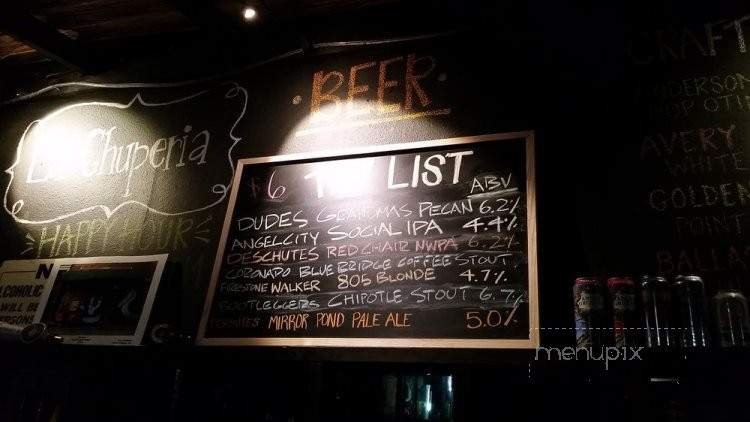 BEER
Chuperia
HAPPY HOUR
$6 LIST
ABV
DUDES GRANDMAS PECAN 6.2%
ANGELCITY SOCIAL IPA 4.4%
DESCHUTES RED CHAIR NWPA 6.2%
CORONADO BLUE BRIDGE COFFEE STOUT
FIRESTONE WALKER 805 BLONDE 4.7%
BOOTLEGGERS CHIPOTLE STOUT 6.7%
MIRROR POND PALE ALE 5.0%
CRAFT
ANDERSON
HOP OTI
AVERY
WHITE
GOLDEN
POINT
BALLA
N
LCOHOLIC
WILL BE
menupix